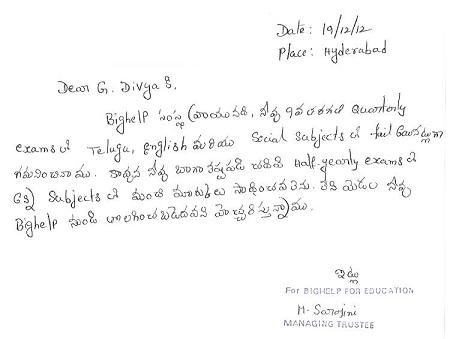 Date: 19/12/12
Place: Hyderabad
Dear G. Divya &.
Bighelp సంస్థ వ్రాయునది, నీవు 9వ తరగతి Quarterly
exams లో Telugu, English మరియు Social subjects లో fail అయినట్లుగా
గమనించినాము. కావున నీవు బాగా కష్టపడి చదివి Half-yearly exams లో
subjects లో మంచి మార్కులు సాధించవలెను. లేని యెడల నీవు
Bighelp నుండి తొలగించబడెదవని హెచ్చరిస్తున్నాము.
ఇట్లు
For BIGHELP FOR EDUCATION
M. Sarojini
MANAGING TRUSTEE